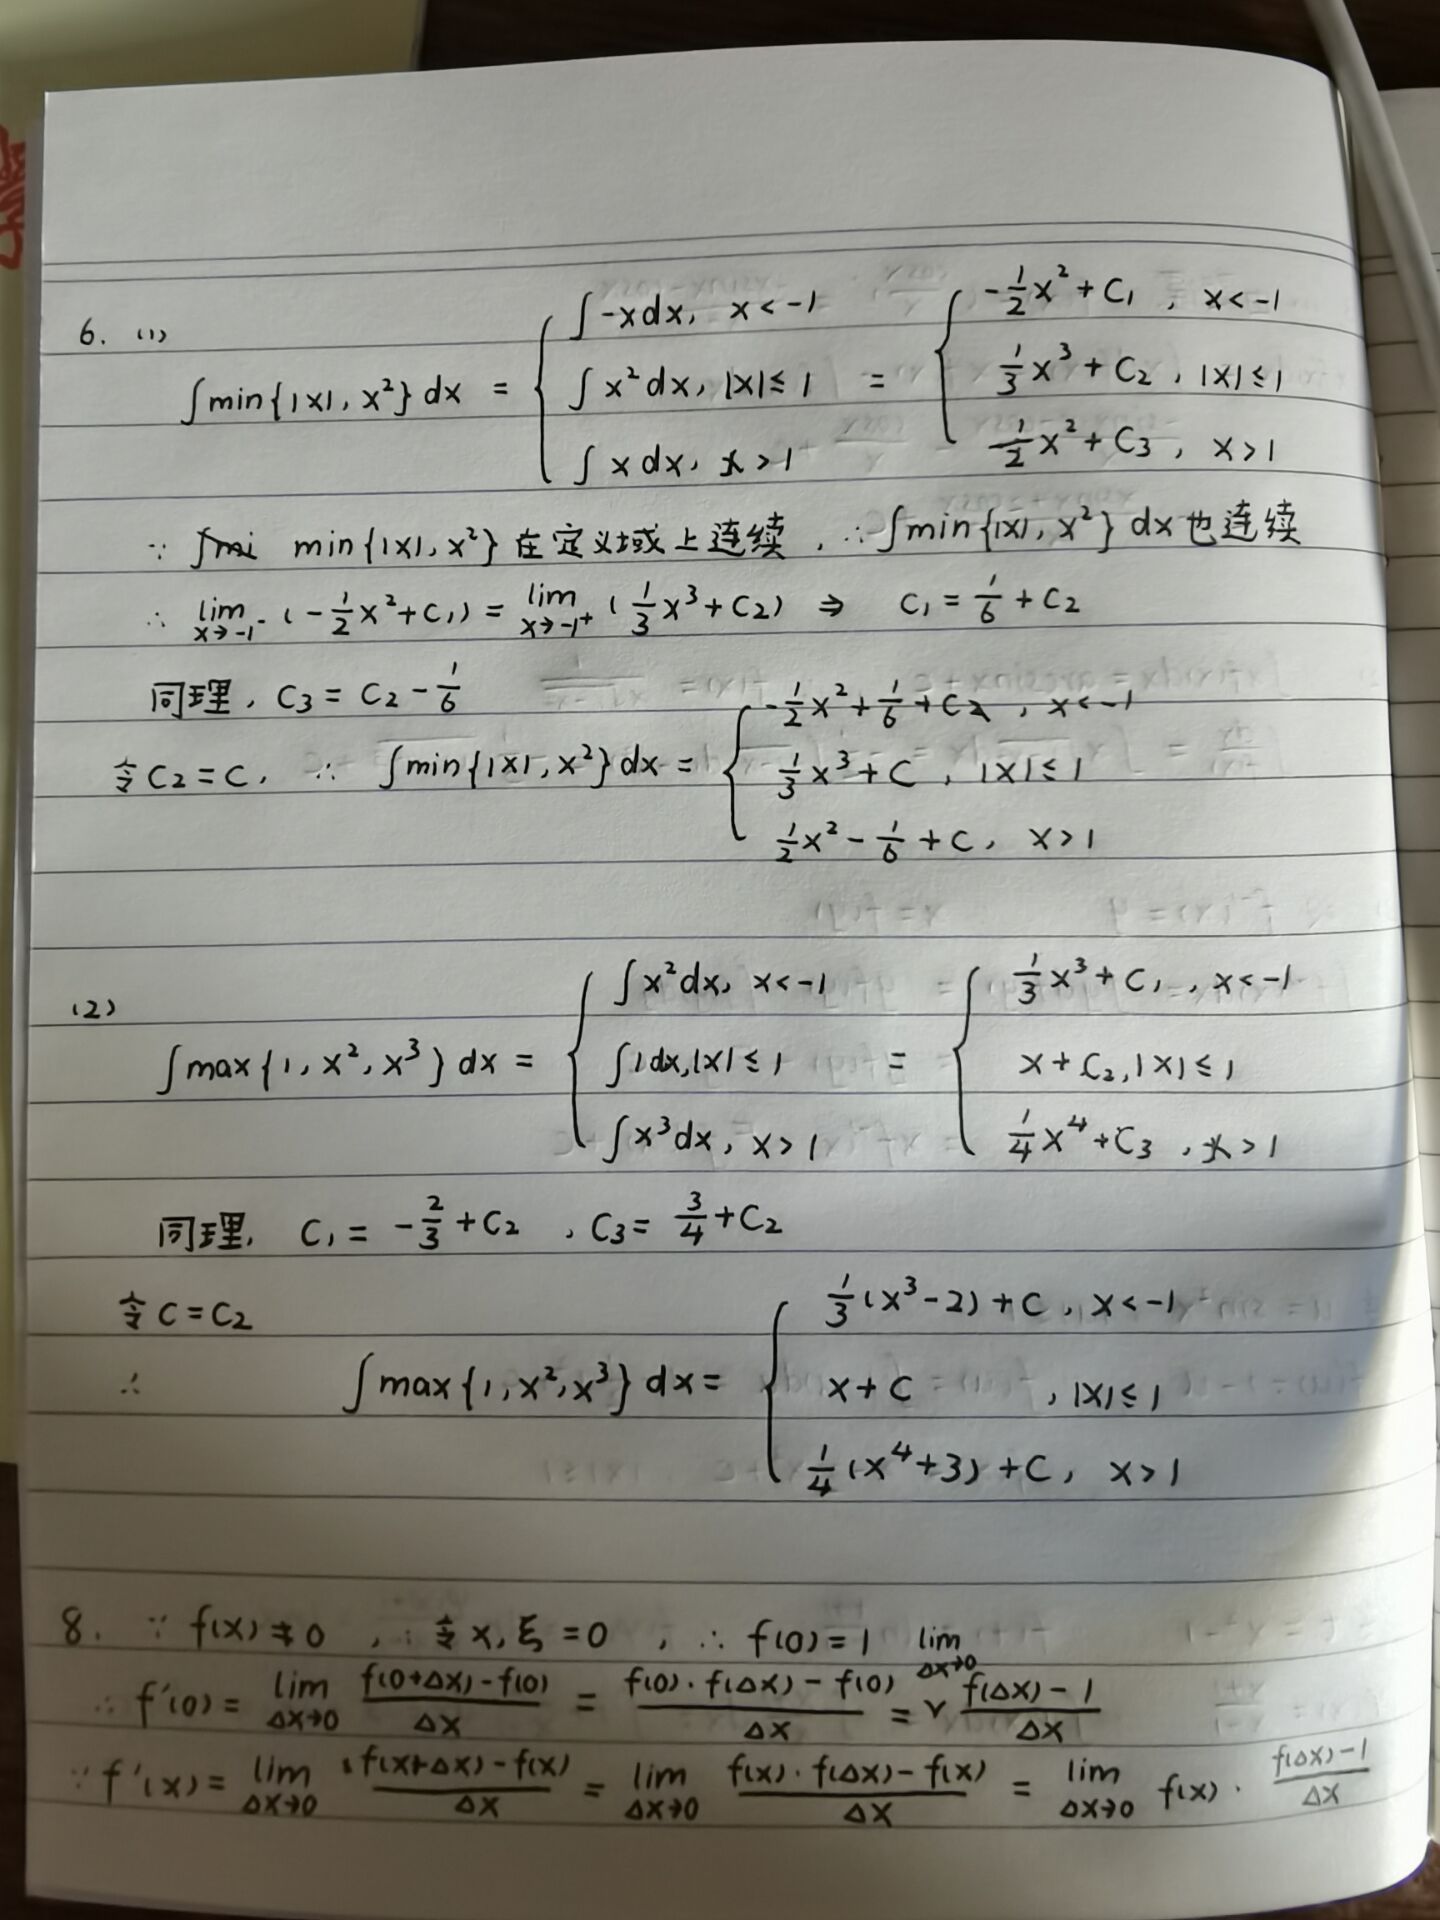 6. (1)
∫min{|x|, x²} dx = { ∫-xdx, x<-1 ; ∫x²dx, |x|≤1 ; ∫xdx, x>1 = { -1/2x²+C₁, x<-1 ; 1/3x³+C₂, |x|≤1 ; 1/2x²+C₃, x>1
∵ min{|x|, x²} 在定义域上连续, ∴ ∫min{|x|, x²} dx也连续
∴ lim x→-1⁻ (-1/2x²+C₁) = lim x→-1⁺ (1/3x³+C₂) ⇒ C₁ = 1/6 + C₂
同理, C₃ = C₂ - 1/6
令C₂=C, ∴ ∫min{|x|, x²}dx = { -1/2x²+1/6+C₂, x<-1 ; 1/3x³+C, |x|≤1 ; 1/2x²-1/6+C, x>1
(2)
∫max{1, x², x³} dx = { ∫x²dx, x<-1 ; ∫1dx, |x|≤1 ; ∫x³dx, x>1 = { 1/3x³+C₁, x<-1 ; x+C₂, |x|≤1 ; 1/4x⁴+C₃, x>1
同理, C₁ = -2/3+C₂, C₃ = 3/4+C₂
令C=C₂
∴ ∫max{1, x², x³} dx = { 1/3(x³-2)+C, x<-1 ; x+C, |x|≤1 ; 1/4(x⁴+3)+C, x>1
8. ∵ f(x)≠0, ∴ 令x, ξ=0, ∴ f(0)=1
∴ f'(0) = lim Δx→0 (f(0+Δx)-f(0))/Δx = (f(0)·f(Δx)-f(0))/Δx = lim Δx→0 (f(Δx)-1)/Δx
∵ f'(x) = lim Δx→0 (f(x+Δx)-f(x))/Δx = lim Δx→0 (f(x)·f(Δx)-f(x))/Δx = lim Δx→0 f(x)·(f(Δx)-1)/Δx